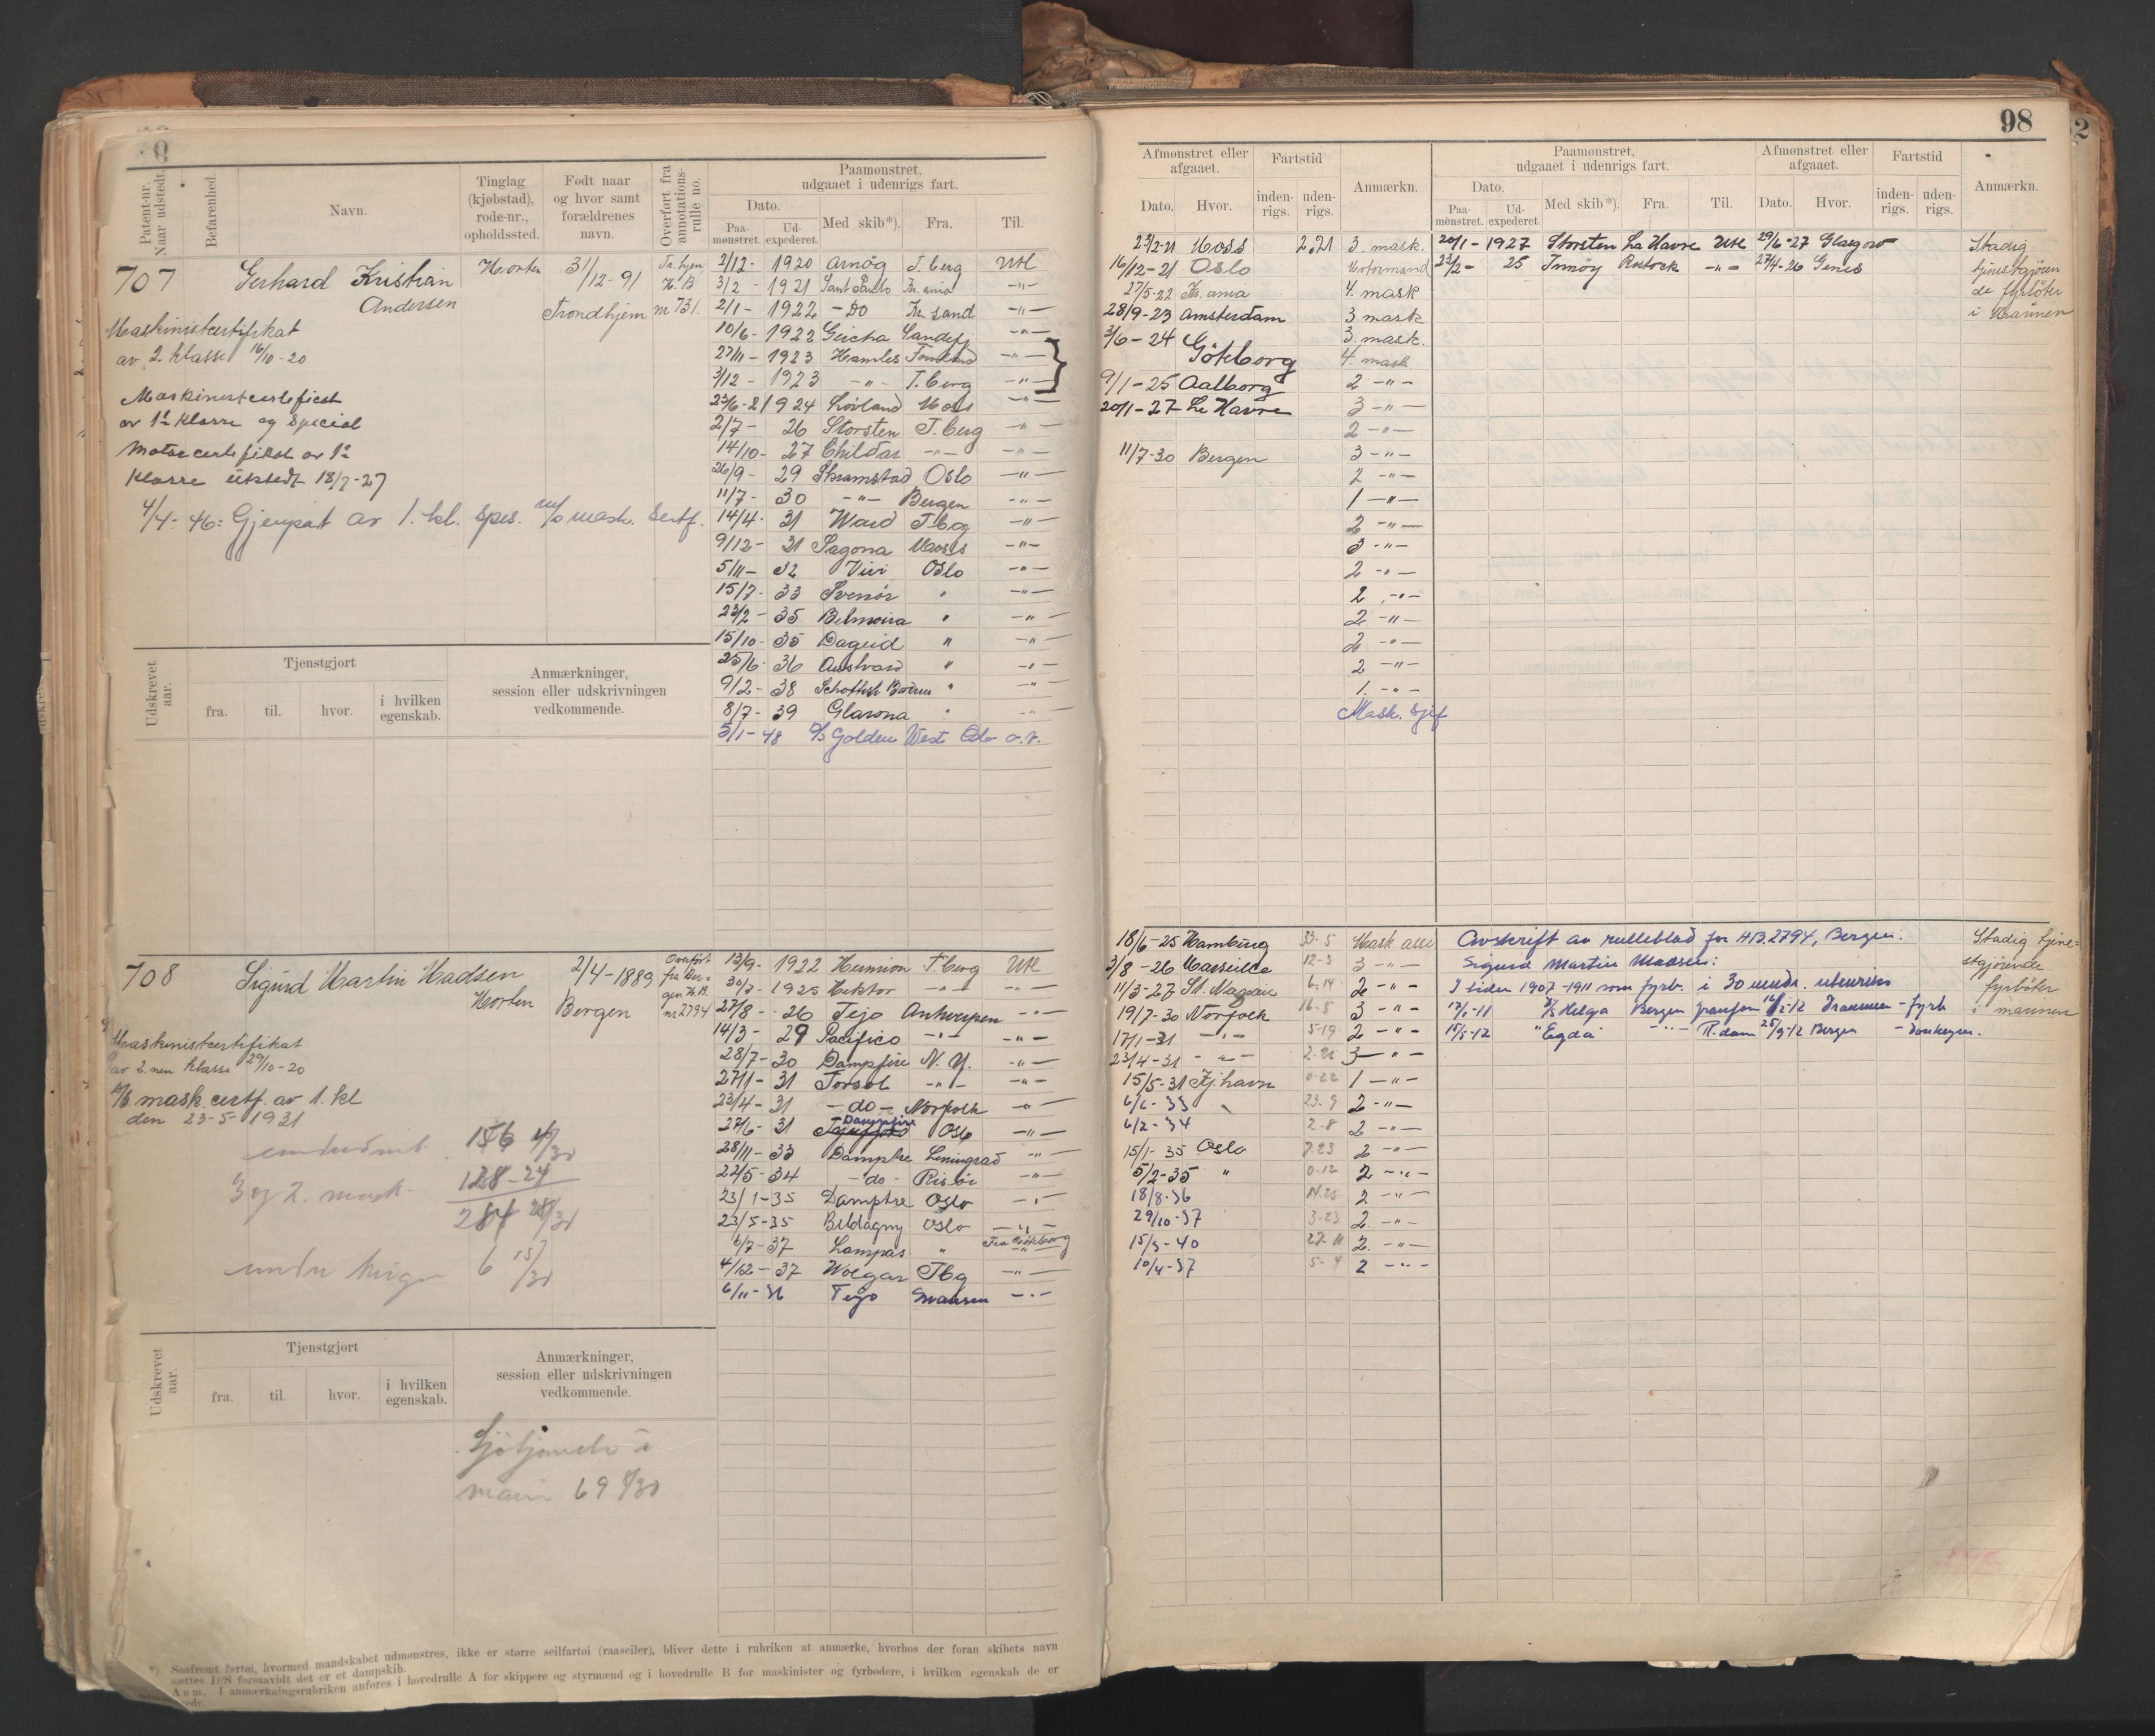 98
Patent-nr. Naar udstedt.
Befarenhed.
Navn.
Tinglag (kjøbstad), rode-nr., opholdssted.
Født naar og hvor samt forældrenes navn.
Overført fra annotations-rulle no.
Paamønstret, udgaaet i udenrigs fart.
Dato.
Paa-mønstret.
Ud-expederet.
Med skib*).
Fra.
Til.
Afmønstret eller afgaaet.
Dato.
Hvor.
Fartstid
inden-rigs.
uden-rigs.
Anmærkn.
Paamønstret, udgaaet i udenrigs fart.
Dato.
Paa-mønstret.
Ud-expederet.
Med skib*).
Fra.
Til.
Afmønstret eller afgaaet.
Dato.
Hvor.
Fartstid
inden-rigs.
uden-rigs.
Anmærkn.
707
Gerhard Kristian Andersen
Horten
31/12-91
Trondhjem
Tr.hjem H.B nr 731
Maskinistcertifikat
av 2. klasse 16/10-20
Maskinistcertificat
av 1ste klasse og Special
Motorcertifikat av 1ste
klasse utstedt 18/7-27
4/4-46: Gjenpat av 1. kl. spes. m/o mask. sertf.
2/12- 1920 Arnög T.berg Utl
3/2 - 1921 Sant Paulo Kr.ania -"-
2/1- 1922 -Do Kr.sand -"-
10/6- 1922 Geisha Sandefj -"-
27/11- 1923 Hamlet -"-
3/12- 1923 -"- T.berg -"-
23/6-21924 Lövland Moss -"-
2/7- 26 Storsten T.berg -"-
14/10- 27 Childar -"- -"-
26/9- 29 Skramstad Oslo -"-
11/7- 30 -"- Bergen -"-
14/4- 31 Ward Tbg -"-
9/12- 31 Sagona Moss -"-
5/11- 32 Vivi Oslo -"-
15/7- 33 Svenör " -"-
23/2- 35 Belmoira " -"-
15/10- 35 Dageid " -"-
25/6- 36 Austvard " -"-
9/2- 38 " -"-
8/7- 39 Glarona " -"-
5/1-48 D/S Golden West Oslo
23/2-21 Moss 2.21 3. mask.
16/12-21 Oslo Motormand
27/5-22 Kr.ania 4. mask
28/9-23 Amsterdam 3 mask
3/6-24 Göteborg 3. mask.
4. mask
9/1-25 Aalborg 2 -"-
20/1-27 Le Havre 3 -"-
2 -"-
11/7-30 Bergen 3 -"-
2 -"-
1 -"-
2 -"-
3 -"-
2 -"-
2 -"-
2 -"-
2 -"-
2 -"-
1. -"-
Mask. sjef
20/1- 1927 Storsten La Havre Utl 29/6-27 Glasgow
23/2- 25 Innöy Rostock -"- 27/4-26 Genes
Stadig
tjenestgjören
de fyrböter
i Marinen
Udskrevet aar.
Tjenstgjort
fra.
til.
hvor.
i hvilken egenskab.
Anmærkninger, session eller udskrivningen vedkommende.
708
Sigurd Martin Madsen
Horten
2/4-1889
Bergen
Overfört fra Bergen H.B. nr 2794
Maskinistcertifikat
av 2.nen klasse 29/10-20
D/S mask. certf. av 1. kl
den 23-5-1931
156 4/30
3 og 2. mask. 128-24
284 28/30
6 15/30
13/9- 1922 Hermion T.berg Utl
30/7- 1925 Hektor -"- -"-
27/8- 26 Tejo Antwerpen -"-
14/3- 29 Pacifico -"- -"-
28/7- 30 Dampfire N.Y. -"-
27/1- 31 Torsol -"- -"-
23/4- 31 -do- Norfolk -"-
27/6- 31 Dampfire Oslo -"-
28/11- 33 Damptre Leningrad -"-
22/5-34 -do- Risör -"-
23/1-35 Damptre Oslo -"-
23/5-35 Beldagny Oslo -"-
6/7-37 Lampas " Fra Göteborg
4/12-37 Wolgar Tbg -"-
6/11-36 Tejo -"-
18/6-25 Hamburg 33-5 Mask ass
3/8-26 Marseille 12-3 3 -"-
11/3-27 St. Nazaire 6-14 2 -"-
19/7-30 Norfolk 16-5 3 -"-
17/1-31 -"- 5-19 2 -"-
23/4-31 -"- 2-26 3 -"-
15/5-31 Kj.havn 0-22 1 -"-
6/6-33 23-9 2 -"-
6/2-34 2-8 2 -"-
15/1-35 Oslo 7.23 2 -"-
5/2-35 " 0-12 2 -"-
18/8-36 14.25 2 -"-
29/10-37 3-23 2 -"-
15/3-40 27-11 2. -"-
10/4-37 5-4 2 -"-
Avskrift av rulleblad for HB.2794, Bergen.
Sigurd Martin Madsen:
I tiden 1907-1911 som fyrb. i 30 mndr. utenriks
17/1-11 D/S Helga Bergen 16/2-12 Drammen - fyrb
15/5-12 "Egda" -"- R.dam 25/9-12 Bergen - donkeym.
Stadig tjene-
stgjørende
fyrböter
i marinen
Udskrevet aar.
Tjenstgjort
fra.
til.
hvor.
i hvilken egenskab.
Anmærkninger, session eller udskrivningen vedkommende.
Sjötjeneste i
marin 69 8/30
*) Saafremt fartøi, hvormed mandskabet udmønstres, ikke er større seilfartøi (raaseiler), bliver dette i rubriken at anmærke, hvorhos der foran skibets navn
sættes D/S forsaavidt det er et dampskib.
Anm. I anmærkningsrubriken anføres i hovedrulle A for skippere og styrmænd og i hovedrulle B for maskinister og fyrbødere, i hvilken egenskab de er